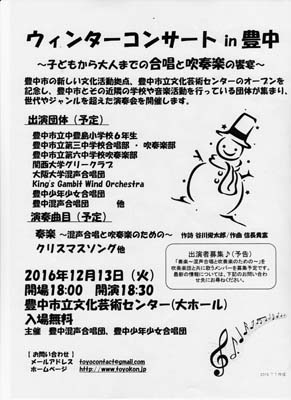 ウィンターコンサート in 豊中
～子どもから大人までの合唱と吹奏楽の饗宴～
豊中市の新しい文化活動拠点、豊中市立文化芸術センターのオープンを
記念し、豊中市とその近隣の学校や音楽活動を行っている団体が集まり、
世代やジャンルを超えた演奏会を開催します。
出演団体（予定）
豊中市立中豊島小学校６年生
豊中市立第三中学校合唱部 ・ 吹奏楽部
豊中市立第六中学校吹奏楽部
関西大学グリークラブ
大阪大学混声合唱団
King's Gambit Wind Orchestra
豊中少年少女合唱団
豊中混声合唱団 他
演奏曲目（予定）
奏楽 ～混声合唱と吹奏楽のための～ 作詩 谷川俊太郎／作曲 信長貴富
クリスマスソング他
2016年12月13日（火）
開場18:00 開演18:30
豊中市立文化芸術センター(大ホール)
入場無料
主催 豊中混声合唱団、豊中少年少女合唱団
出演者募集♪（予告）
「奏楽～混声合唱と吹奏楽のための～」を
吹奏楽団と共に歌うメンバーを募集予定です。
最新の情報については、下記のお問い合わ
せ先にお尋ねください。
【お問い合わせ】
メールアドレス toyocontact@gmail.com
ホームページ http://www.toyokon.jp